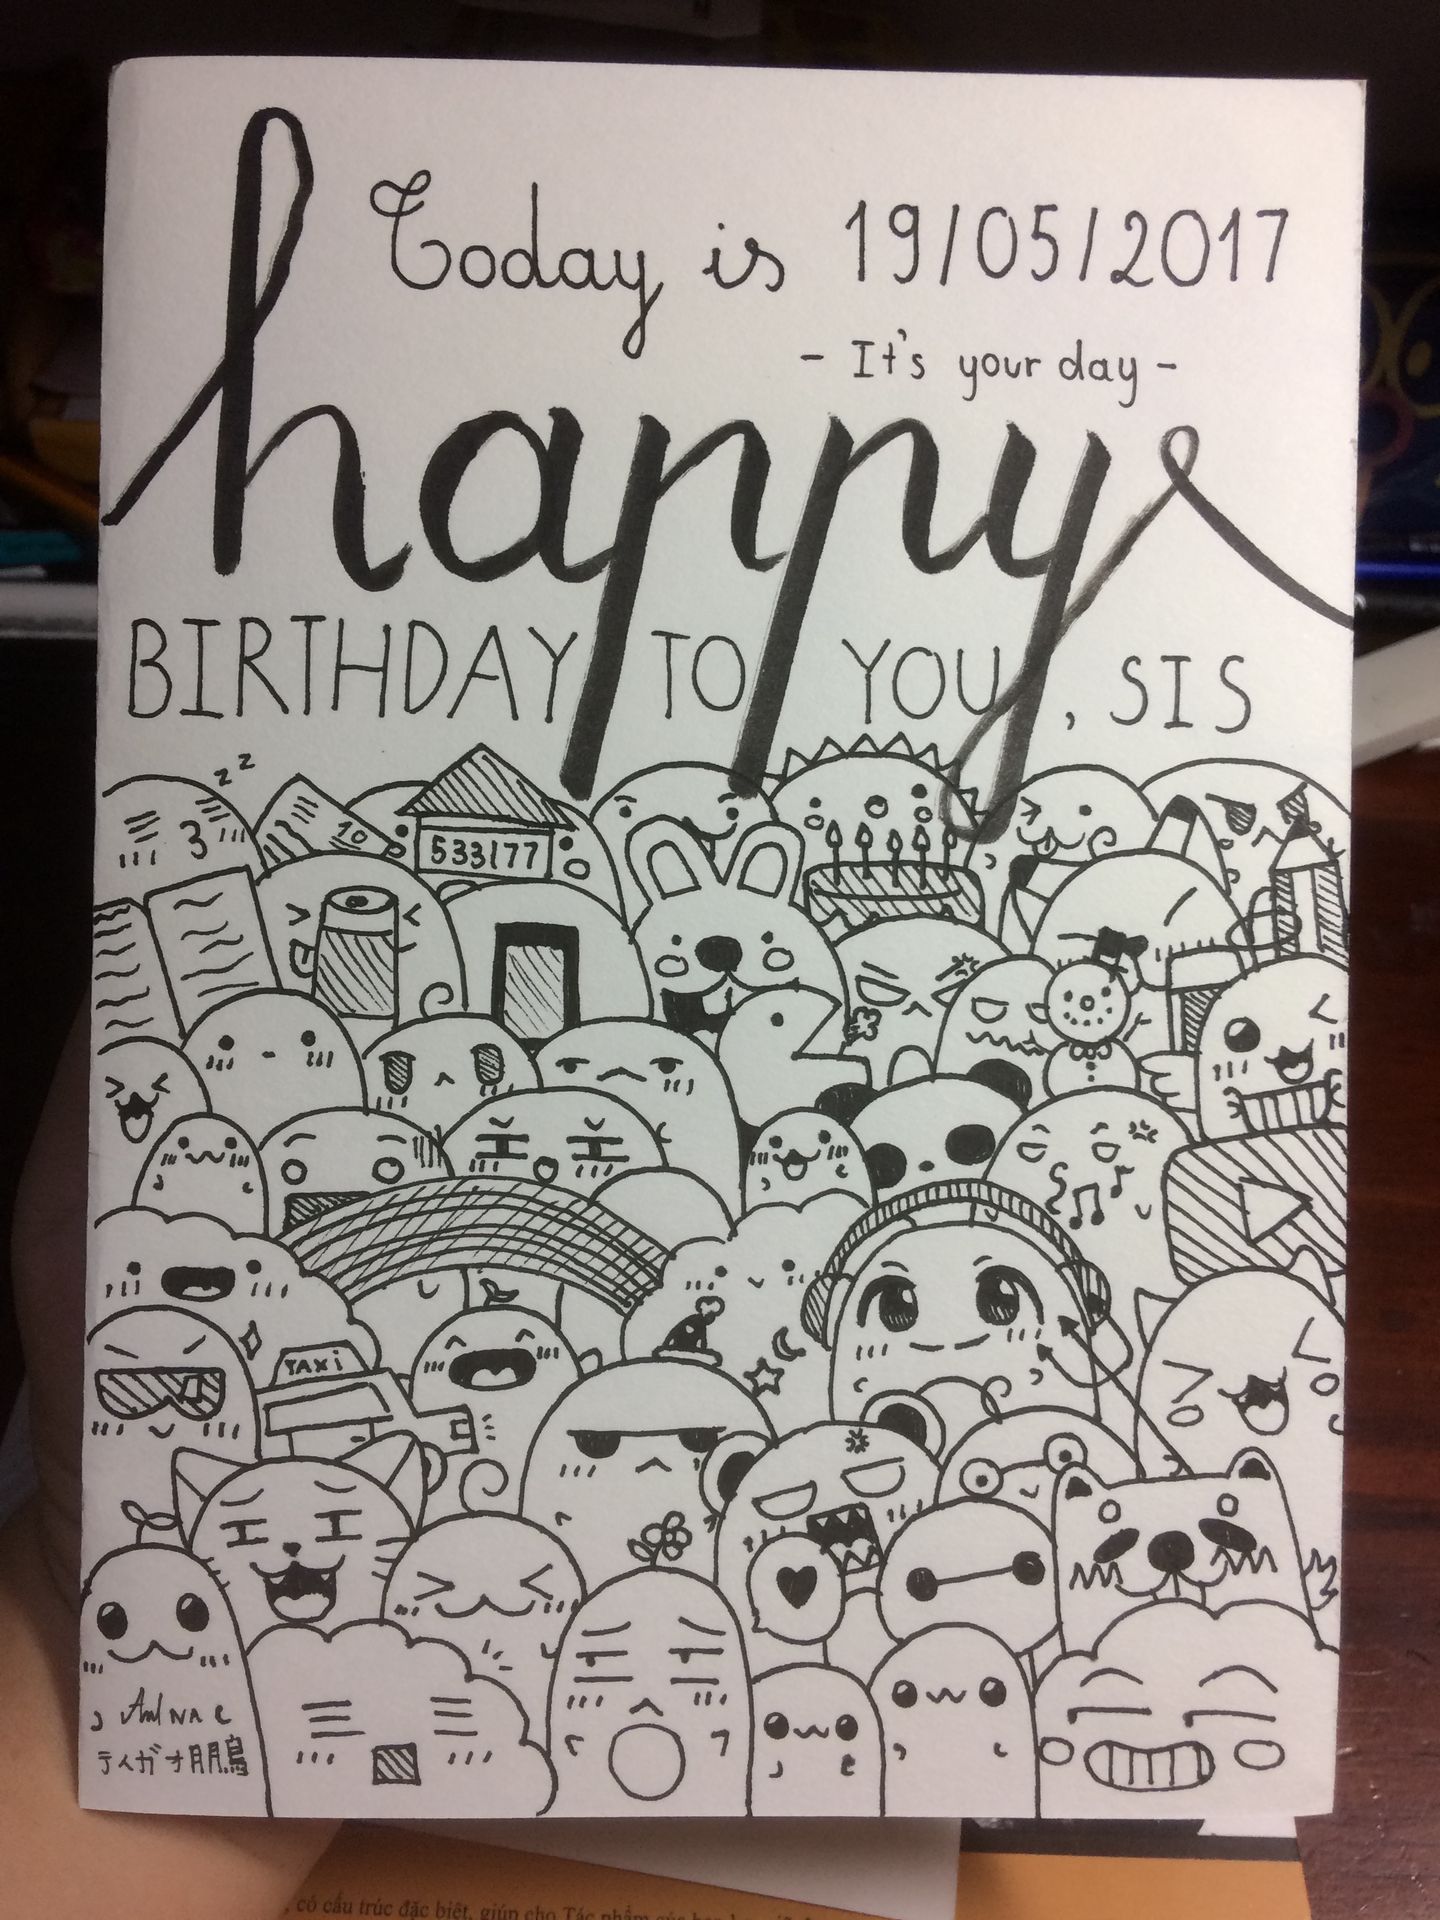 Today is 19/05/2017
- It's your day -
happy
BIRTHDAY TO YOU, SIS
z z
10
533177
TAXI
ティガオ朋鳥
, có cấu trúc đặc biệt, giúp cho Tác phẩm